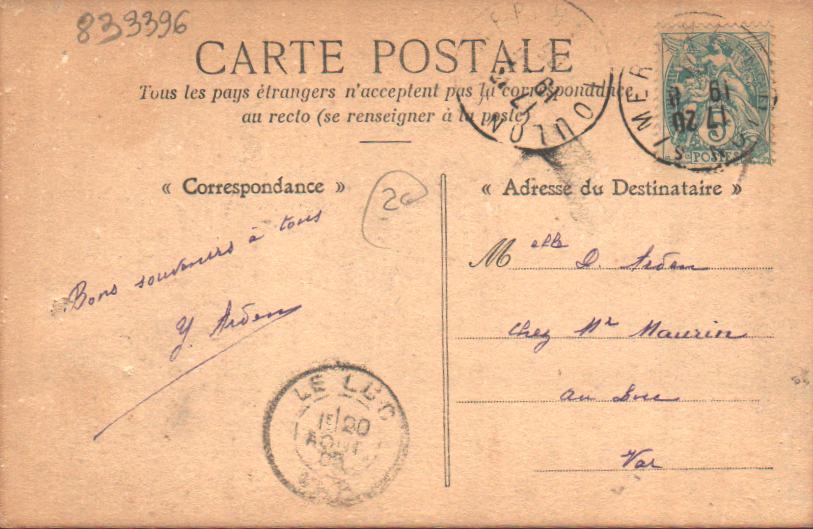 833396
CARTE POSTALE
Tous les pays étrangers n'acceptent pas la correspondance
au recto (se renseigner à la poste)
TOULON
17
19
IMER
19
17 20
5c
POSTES
« Correspondance »
20
« Adresse du Destinataire »
Bons souvenirs à tous
Y. Arden
Melle D. Arden
chez Mr Maurin
au Luc
Var
LE LUC
20
AOUT